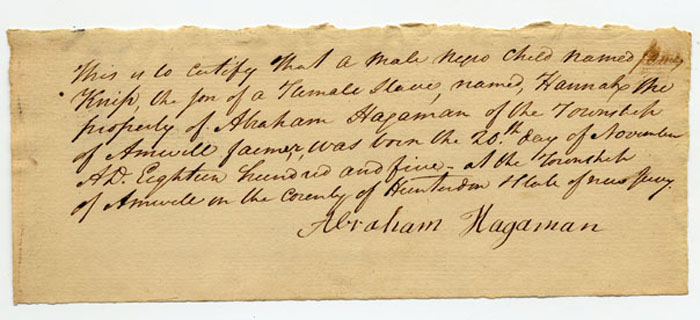 This is to certify that a male Negro Child named James
Knip, the son of a Female Slave, named, Hannah, the
property of Abraham Hagaman of the Township
of Amwell farmer, was born the 20th day of November
AD. Eighteen hundred and five - at the Township
of Amwell in the County of Hunterdon State of new Jersey.
Abraham Hagaman